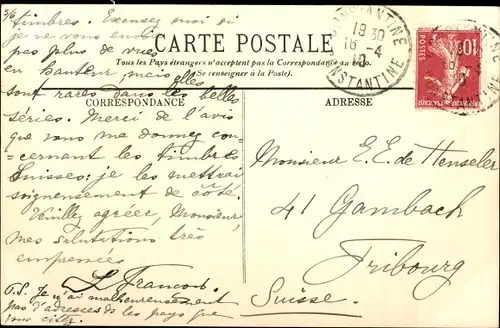 3/6 timbres. Excusez moi si
je ne vous envoie
pas plus de vues
en hauteur, mais elles
sont rares dans les belles
séries. Merci de l'avis
que vous me donnez con-
cernant les timbres
Suisses: je les mettrai
soigneusement de côté.
Veuillez agréer, Monsieur,
mes salutations très
empressées
L. Francois.
P.S. Je n'ai malheureusement
pas d'adresses de les pays que
vous citez.
CARTE POSTALE
Tous les Pays étrangers n'acceptent pas la Correspondance au recto.
(Se renseigner à la Poste).
CORRESPONDANCE
ADRESSE
CONSTANTINE
19 30
16-4
10
CONSTANTINE
10 c
POSTES
REPUBLIQUE FRANÇAISE
Monsieur E. E. de Henseler
41 Gambach
Fribourg
Suisse.